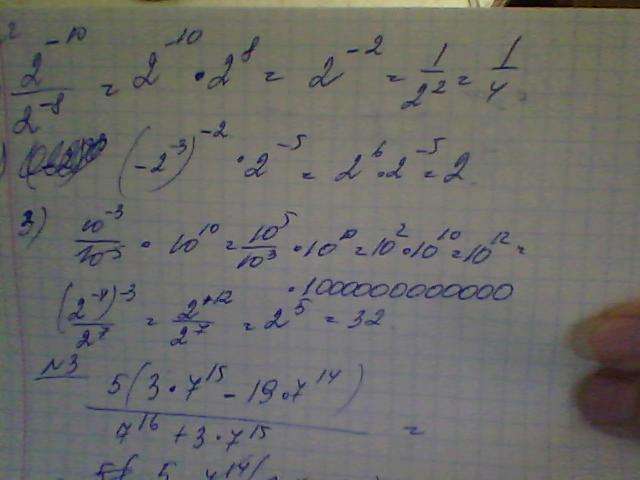 2^-10 / 2^-8 = 2^-10 · 2^8 = 2^-2 = 1/2^2 = 1/4
(-2^-3)^-2 · 2^-5 = 2^6 · 2^-5 = 2
3) 10^-3 / 10^-5 · 10^10 = 10^5 / 10^3 · 10^10 = 10^2 · 10^10 = 10^12 =
(2^-4)^-3 / 2^7 = 2^+12 / 2^7 = 2^5 = 32
№3
5(3·7^15 - 19·7^14) / 7^16 + 3·7^15 =